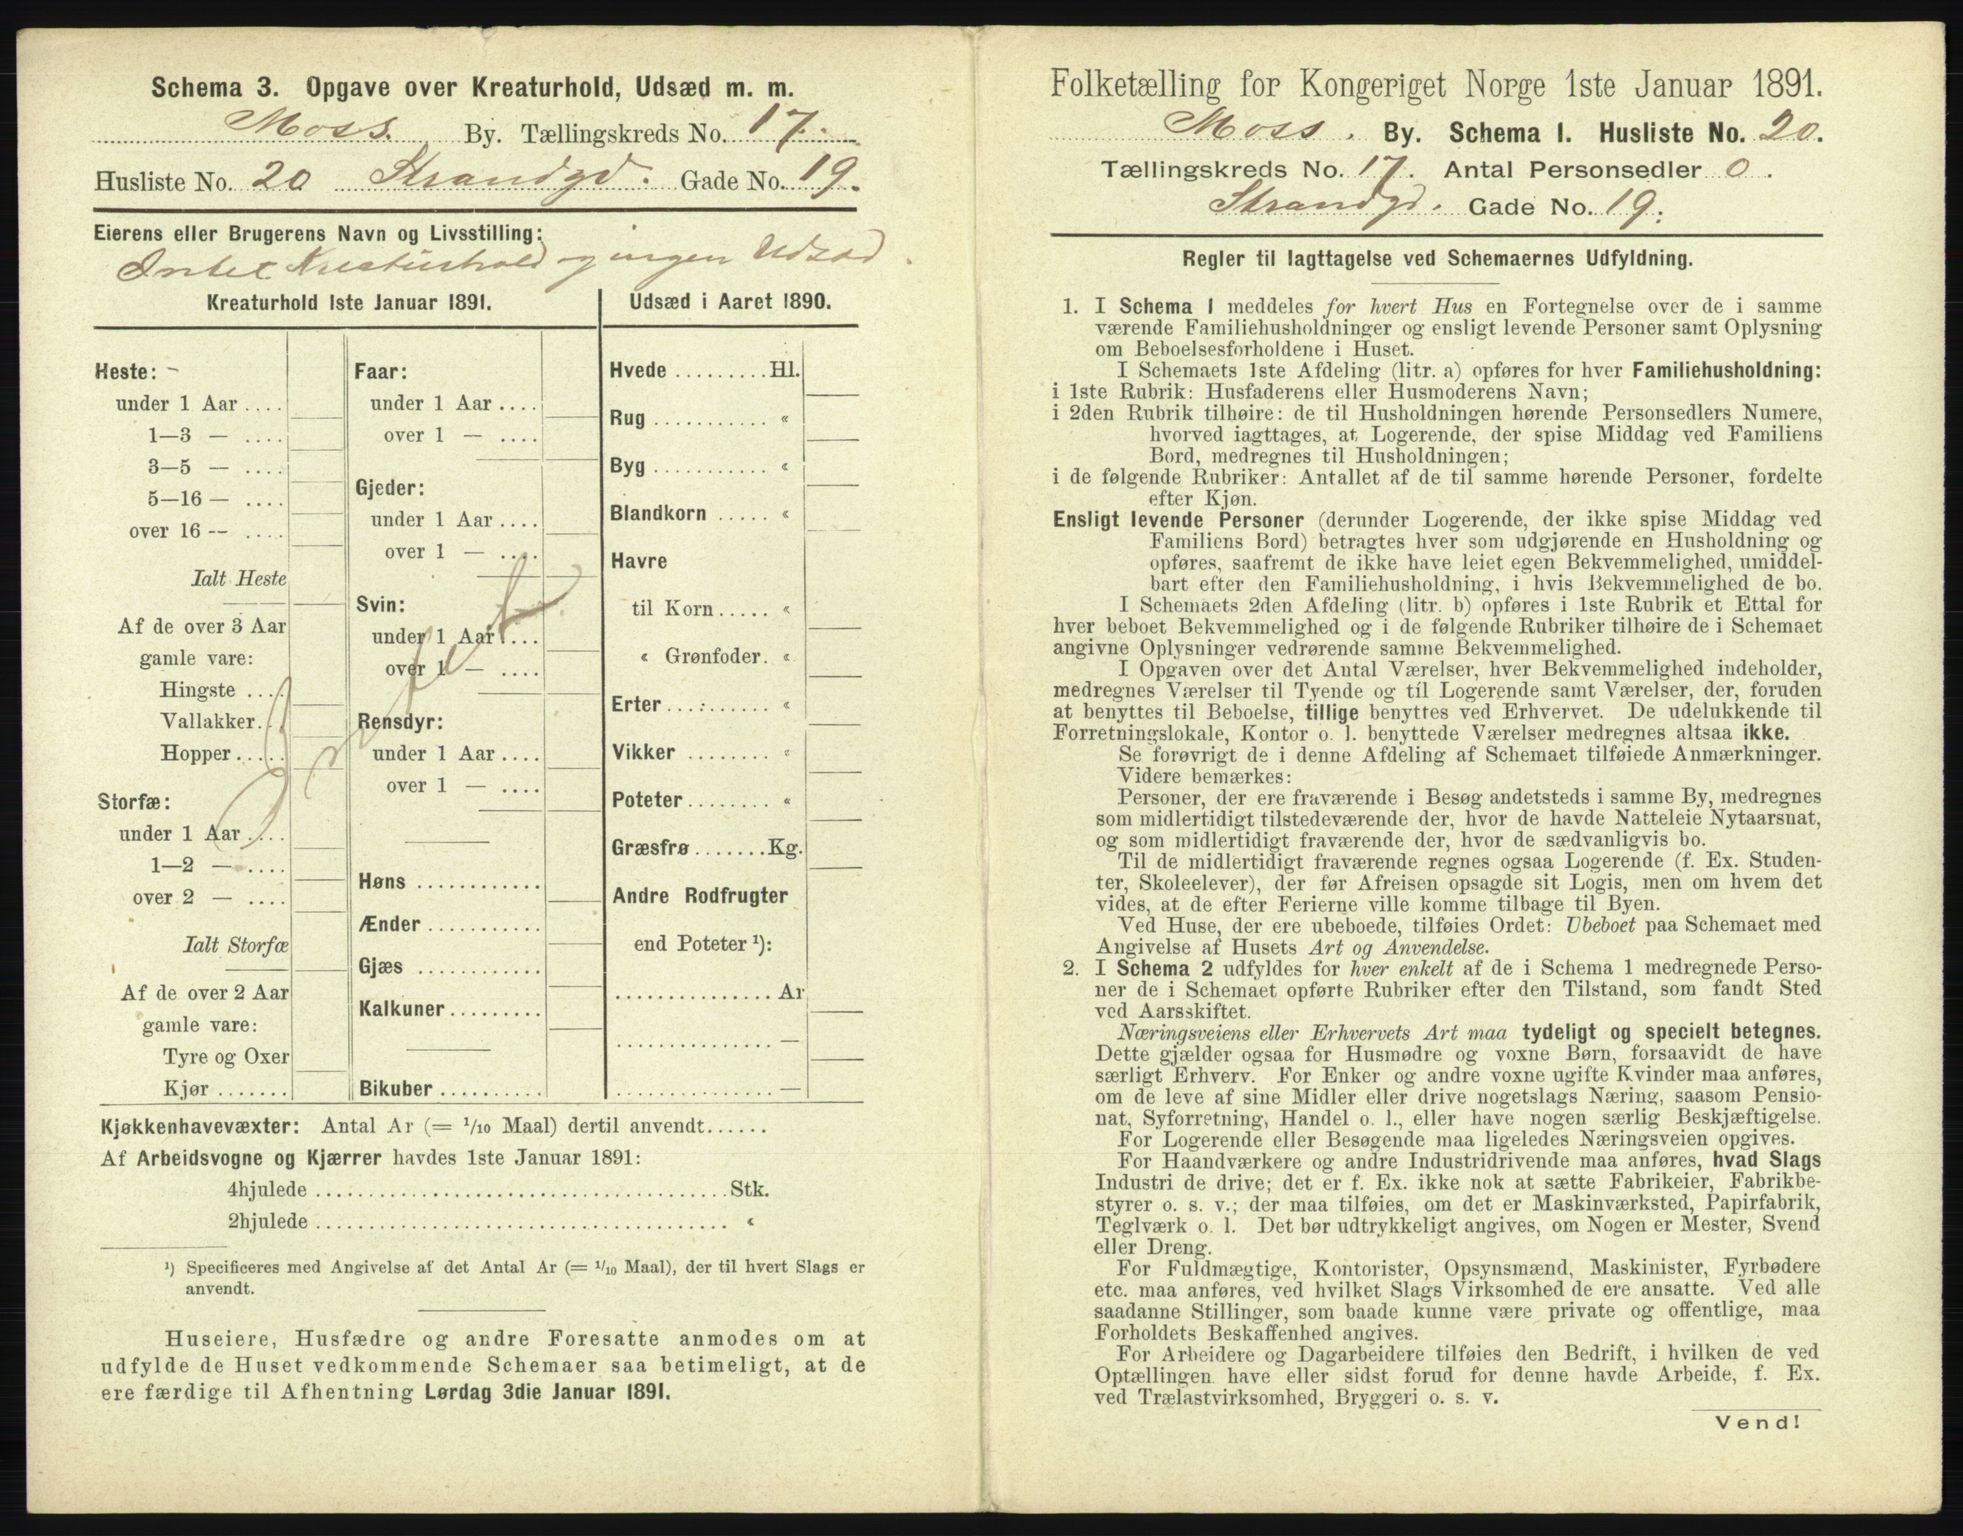 Schema 3. Opgave over Kreaturhold, Udsæd m. m.
Moss. By. Tællingskreds No. 17.
Husliste No. 20 Strandgd. Gade No. 19.
Eierens eller Brugerens Navn og Livsstilling:
Intet Kreaturhold og ingen Udsæd.
Kreaturhold 1ste Januar 1891.
Heste: -
under 1 Aar ....
1—3 — ....
3—5 — ....
5—16 — ....
over 16 -- ....
Ialt Heste
Af de over 3 Aar
gamle vare:
Hingste ....
Vallakker....
Hopper.....
Storfæ:
under 1 Aar ....
1—2 — ....
over 2 — ....
Ialt Storfæ
Af de over 2 Aar
gamle vare:
Tyre og Oxer
Kjør .......
Faar:
under 1 Aar ....
over 1 — ....
Gjeder:
under 1 Aar ....
over 1 — ....
Svin:
under 1 Aar ....
over 1 — ....
Rensdyr:
under 1 Aar ....
over 1 — ....
Høns ............
Ænder ...........
Gjæs ............
Kalkuner.........
Bikuber ..........
Intet
Udsæd i Aaret 1890.
Hvede .........Hl.
Rug ........... «
Byg ........... «
Blandkorn ..... «
Havre
til Korn..... «
« Grønfoder. «
Erter ......... «
Vikker ........ «
Poteter........ «
Græsfrø .......Kg.
Andre Rodfrugter
end Poteter ¹):
............... Ar
............... —
............... —
Kjøkkenhavevæxter: Antal Ar (= 1/10 Maal) dertil anvendt......
Af Arbeidsvogne og Kjærrer havdes 1ste Januar 1891:
4hjulede ....................................... Stk.
2hjulede ....................................... «
¹) Specificeres med Angivelse af det Antal Ar (= 1/10 Maal), der til hvert Slags er
anvendt.
Huseiere, Husfædre og andre Foresatte anmodes om at
udfylde de Huset vedkommende Schemaer saa betimeligt, at de
ere færdige til Afhentning Lørdag 3die Januar 1891.
Folketælling for Kongeriget Norge 1ste Januar 1891.
Moss. By. Schema I. Husliste No. 20.
Tællingskreds No. 17. Antal Personsedler 0.
Strandgd. Gade No. 19.
Regler til Iagttagelse ved Schemaernes Udfyldning.
1. I Schema 1 meddeles for hvert Hus en Fortegnelse over de i samme
værende Familiehusholdninger og ensligt levende Personer samt Oplysning
om Beboelsesforholdene i Huset.
I Schemaets 1ste Afdeling (litr. a) opføres for hver Familiehusholdning:
i 1ste Rubrik: Husfaderens eller Husmoderens Navn;
i 2den Rubrik tilhøire: de til Husholdningen hørende Personsedlers Numere,
hvorved iagttages, at Logerende, der spise Middag ved Familiens
Bord, medregnes til Husholdningen;
i de følgende Rubriker: Antallet af de til samme hørende Personer, fordelte
efter Kjøn.
Ensligt levende Personer (derunder Logerende, der ikke spise Middag ved
Familiens Bord) betragtes hver som udgjørende en Husholdning og
opføres, saafremt de ikke have leiet egen Bekvemmelighed, umiddel-
bart efter den Familiehusholdning, i hvis Bekvemmelighed de bo.
I Schemaets 2den Afdeling (litr. b) opføres i 1ste Rubrik et Ettal for
hver beboet Bekvemmelighed og i de følgende Rubriker tilhøire de i Schemaet
angivne Oplysninger vedrørende samme Bekvemmelighed.
I Opgaven over det Antal Værelser, hver Bekvemmelighed indeholder,
medregnes Værelser til Tyende og til Logerende samt Værelser, der, foruden
at benyttes til Beboelse, tillige benyttes ved Erhvervet. De udelukkende til
Forretningslokale, Kontor o. l. benyttede Værelser medregnes altsaa ikke.
Se forøvrigt de i denne Afdeling af Schemaet tilføiede Anmærkninger.
Videre bemærkes:
Personer, der ere fraværende i Besøg andetsteds i samme By, medregnes
som midlertidigt tilstedeværende der, hvor de havde Natteleie Nytaarsnat,
og som midlertidigt fraværende der, hvor de sædvanligvis bo.
Til de midlertidigt fraværende regnes ogsaa Logerende (f. Ex. Studen-
ter, Skoleelever), der før Afreisen opsagde sit Logis, men om hvem det
vides, at de efter Ferierne ville komme tilbage til Byen.
Ved Huse, der ere ubeboede, tilføies Ordet: Ubeboet paa Schemaet med
Angivelse af Husets Art og Anvendelse.
2. I Schema 2 udfyldes for hver enkelt af de i Schema 1 medregnede Perso-
ner de i Schemaet opførte Rubriker efter den Tilstand, som fandt Sted
ved Aarsskiftet.
Næringsveiens eller Erhvervets Art maa tydeligt og specielt betegnes.
Dette gjælder ogsaa for Husmødre og voxne Børn, forsaavidt de have
særligt Erhverv. For Enker og andre voxne ugifte Kvinder maa anføres,
om de leve af sine Midler eller drive nogetslags Næring, saasom Pensio-
nat, Syforretning, Handel o. l., eller have nogen særlig Beskjæftigelse.
For Logerende eller Besøgende maa ligeledes Næringsveien opgives.
For Haandværkere og andre Industridrivende maa anføres, hvad Slags
Industri de drive; det er f. Ex. ikke nok at sætte Fabrikeier, Fabrikbe-
styrer o. s. v.; der maa tilføies, om det er Maskinværksted, Papirfabrik,
Teglværk o. l. Det bør udtrykkeligt angives, om Nogen er Mester, Svend
eller Dreng.
For Fuldmægtige, Kontorister, Opsynsmænd, Maskinister, Fyrbødere
etc. maa anføres, ved hvilket Slags Virksomhed de ere ansatte. Ved alle
saadanne Stillinger, som baade kunne være private og offentlige, maa
Forholdets Beskaffenhed angives.
For Arbeidere og Dagarbeidere tilføies den Bedrift, i hvilken de ved
Optællingen have eller sidst forud for denne havde Arbeide, f. Ex.
ved Trælastvirksomhed, Bryggeri o. s. v.
Vend!